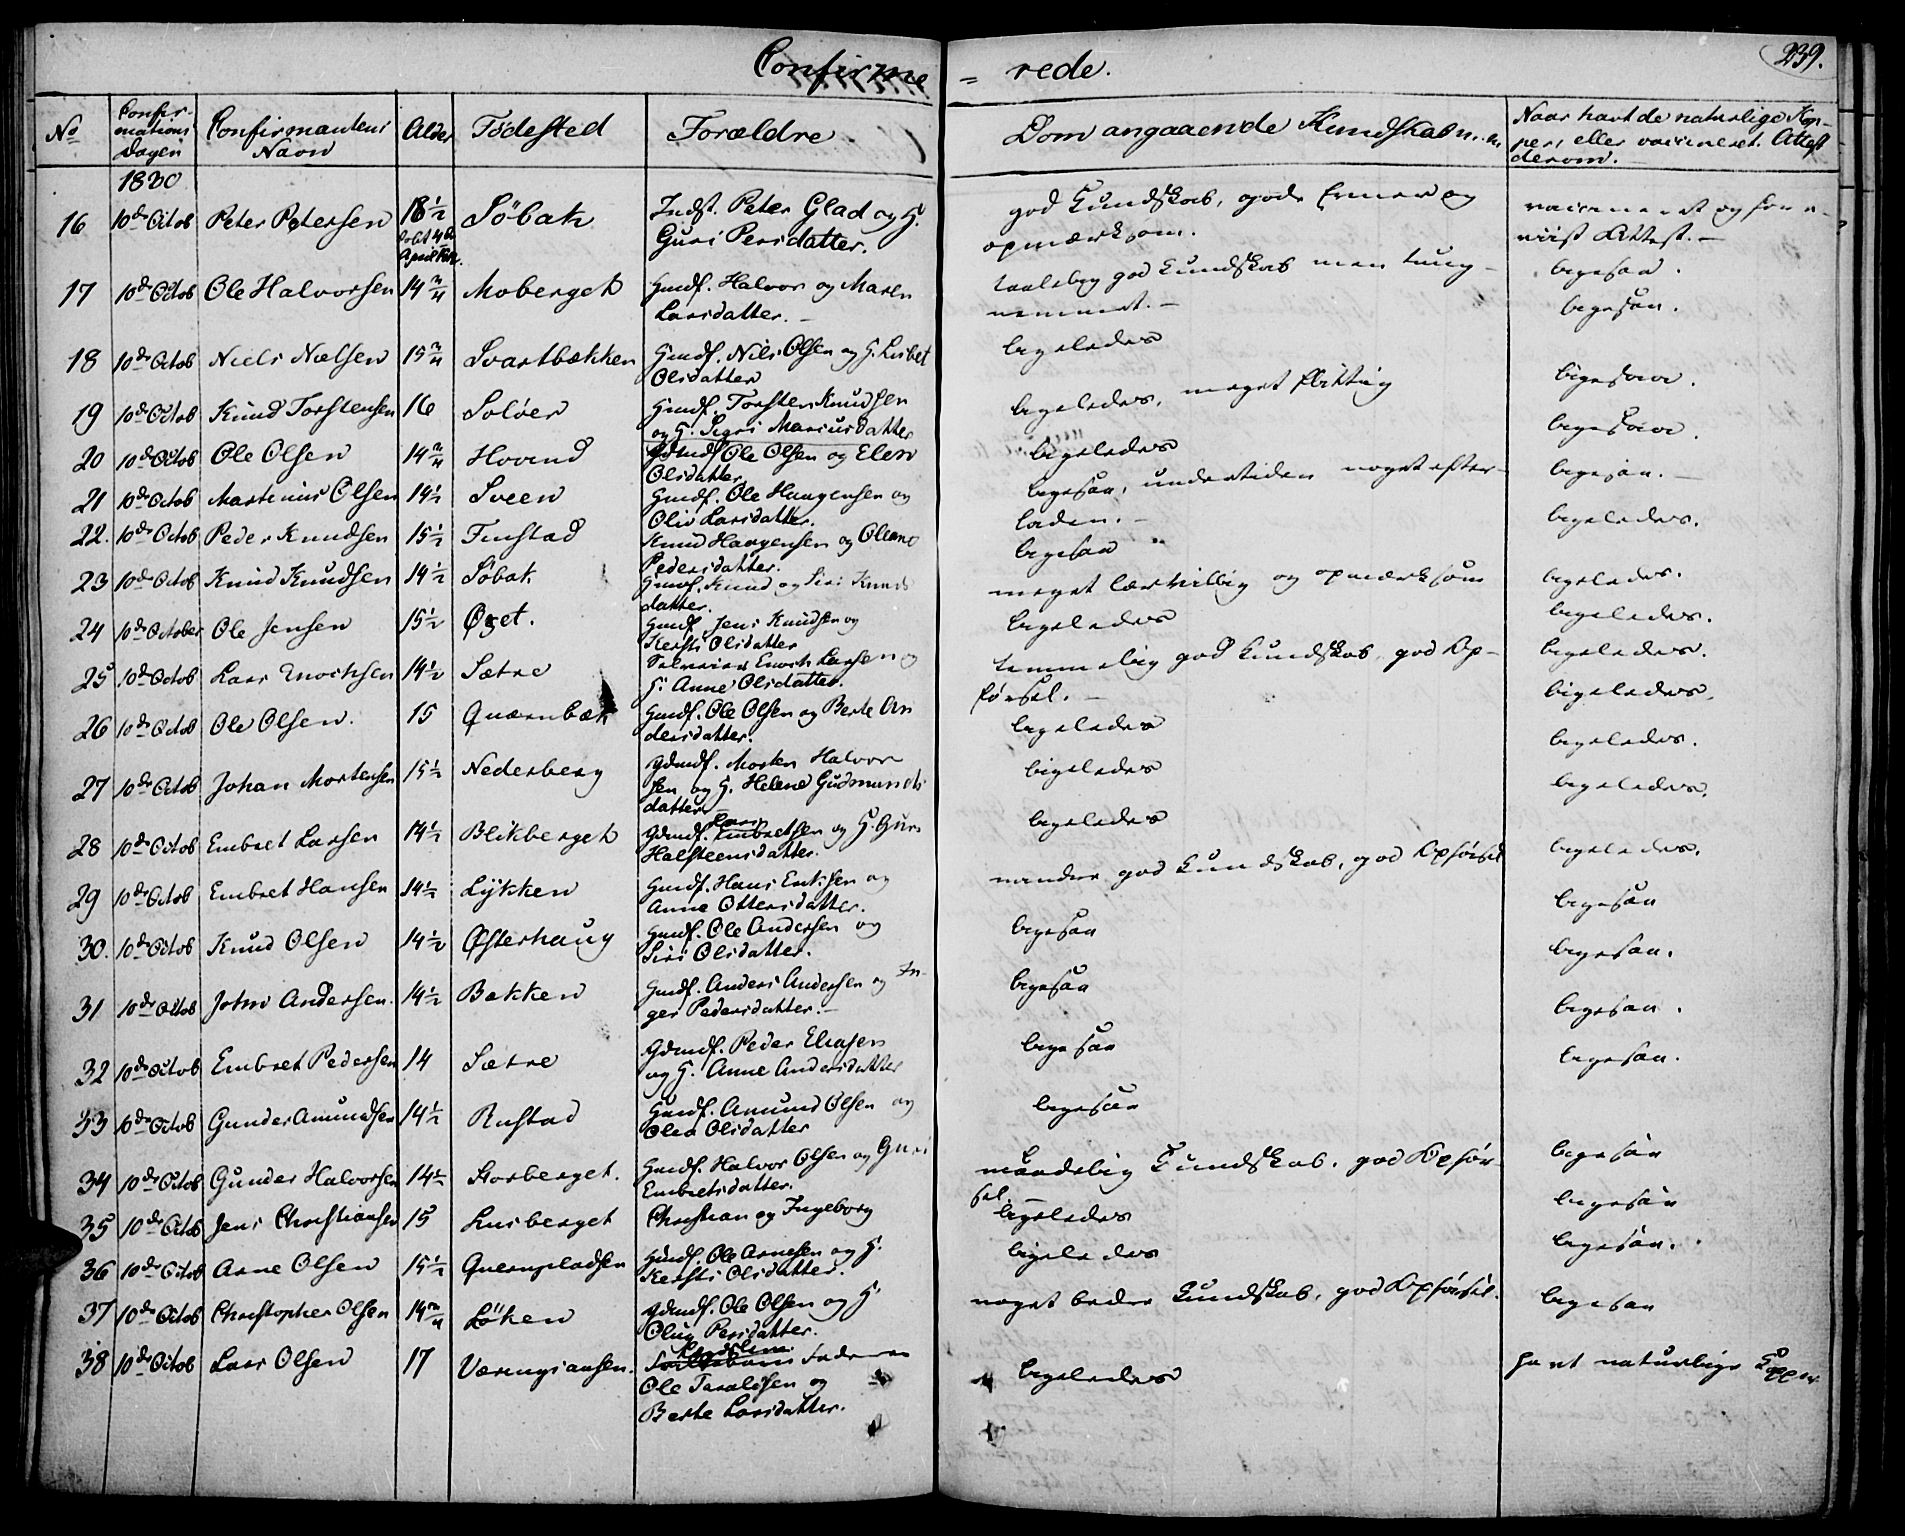 Confirme = rede.
239.
No
Confir-
mations
Dagen
Confirmantens
Navn
Alder
Födested
Forældre
Dom angaaende Kundskab m. m.
Naar havt de naturlige Kop-
per, eller vaccineret. Attest
derom.
1830
16 10de Octob Peter Petersen 18 1/2 Söbak Indst. Peter Glad og H.
Guri Persdatter.
god Kundskab, gode Evner og
opmærksom.
vaccineret og fore-
viist Attest. -
17 10de Octob Ole Halvorsen 14 3/4 Moberget Huusf. Halvor og Maren
Larsdatter. -
taalelig god Kundskab men tung-
nemmet. -
ligesaa.
18 10de Octob Niels Nielsen 15 3/4 Svartbækken Huusf. Nils Olsen og H. Lisbet
Olsdatter
ligeledes
ligesaa.
19 10de Octob Knud Torstensen 16 Solöer Huusf. Torsten Knudsen
og H. Sigri Mariusdatter
ligeledes, meget flittig
ligesaa.
20 10de Octob Ole Olsen 14 3/4 Hovind Gdmdf. Ole Olsen og Elen
Olsdatter
ligeledes
ligesaa.
21 10de Octob Martinius Olsen 14 1/2 Sveen Huusf. Ole Haagensen og
Oliv Larsdatter.
ligesaa, undertiden noget efter-
laden. -
ligesaa. -
22. 10de Octob Peder Knudsen 15 1/2 Finstad Knud Haagensen og Oleane
Pedersdatter.
ligesaa
ligeledes.
23 10de Octob Knud Knudsen 14 1/2 Söbak Huusf. Knud og Siri Knuds
datter.
meget lærvillig og opmærksom
ligeledes.
24 10de October Ole Jensen 15 1/2 Øget. Huusf. Jens Knudsen og
Kersti Olsdatter
ligeledes
ligeledes.
25 10de Octob Lars Enochsen 14 1/2 Sætre Enoch Larsen og
H. Anne Olsdatter.
temmelig god Kundskab, god Op-
försel. -
ligeledes.
26 10de Octob Ole Olsen. 15 Quærnbæk Huusf. Ole Olsen og Berte An
dersdatter.
ligeledes
ligeledes.
27 10de Octob Johan Mortensen 15 1/2 Nederberg Gdmdf. Morten Halvor
sen og H. Helene Gudmunds
datter
ligeledes
ligeledes.
28 10de Octob Embret Larsen 14 1/2 Blikberget Gdmdf. Lars Embretsen og H. Guri
Halsteensdatter.
ligeledes
ligeledes.
29 10de Octob Embret Hansen 14 1/2 Lykken Huusf. Hans Eriksen og
Anne Ottersdatter.
mindre god Kundskab, god Opförsel
ligeledes.
30. 10de Octob Knud Olsen 14 1/2 Østerhaug Huusf. Ole Andersen og
Siri Olsdatter.
ligesaa
ligesaa
31 10de Octob John Andersen. 14 1/2 Bakken Huusf. Anders Andersen og In-
ger Pedersdatter. -
ligesaa
ligesaa.
32 10de Octob Embret Pedersen 14 Sætre Gdmdf. Peder Eliasen
og H. Anne Andersdatter
ligesaa
ligesaa.
33 10de Octob Gunder Amundsen 14 1/2 Rustad Huusf. Amund Olsen og
Olea Olsdatter
ligesaa
ligesaa.
34 10de Octob Gunder Halvorsen 14 1/2 Storberget. Huusf. Halvor Olsen og Guri
Embretsdatter.
maadelig Kundskab, god Opför-
sel. -
ligesaa
35 10de Octob Jens Christiansen 15 Lusberget Christian og Ingeborg
ligeledes
ligesaa
36 10de Octob Arne Olsen 15 1/2 Quernpladsen Huusf. Ole Arnesen og H.
Kersti Olsdatter.
ligeledes
ligesaa.
37 10de Octob Christopher Olsen 14 3/4 Löken Gdmdf. Ole Olsen og H.
Oliug Persdatter.
noget bedre Kundskab, god Opförsel.
ligesaa
38 10de Octob Lars Olsen 17 Væringsaasen. Faderen
Ole Taraldsen og
Berte Larsdatter.
ligeledes
havt naturlige Kopper